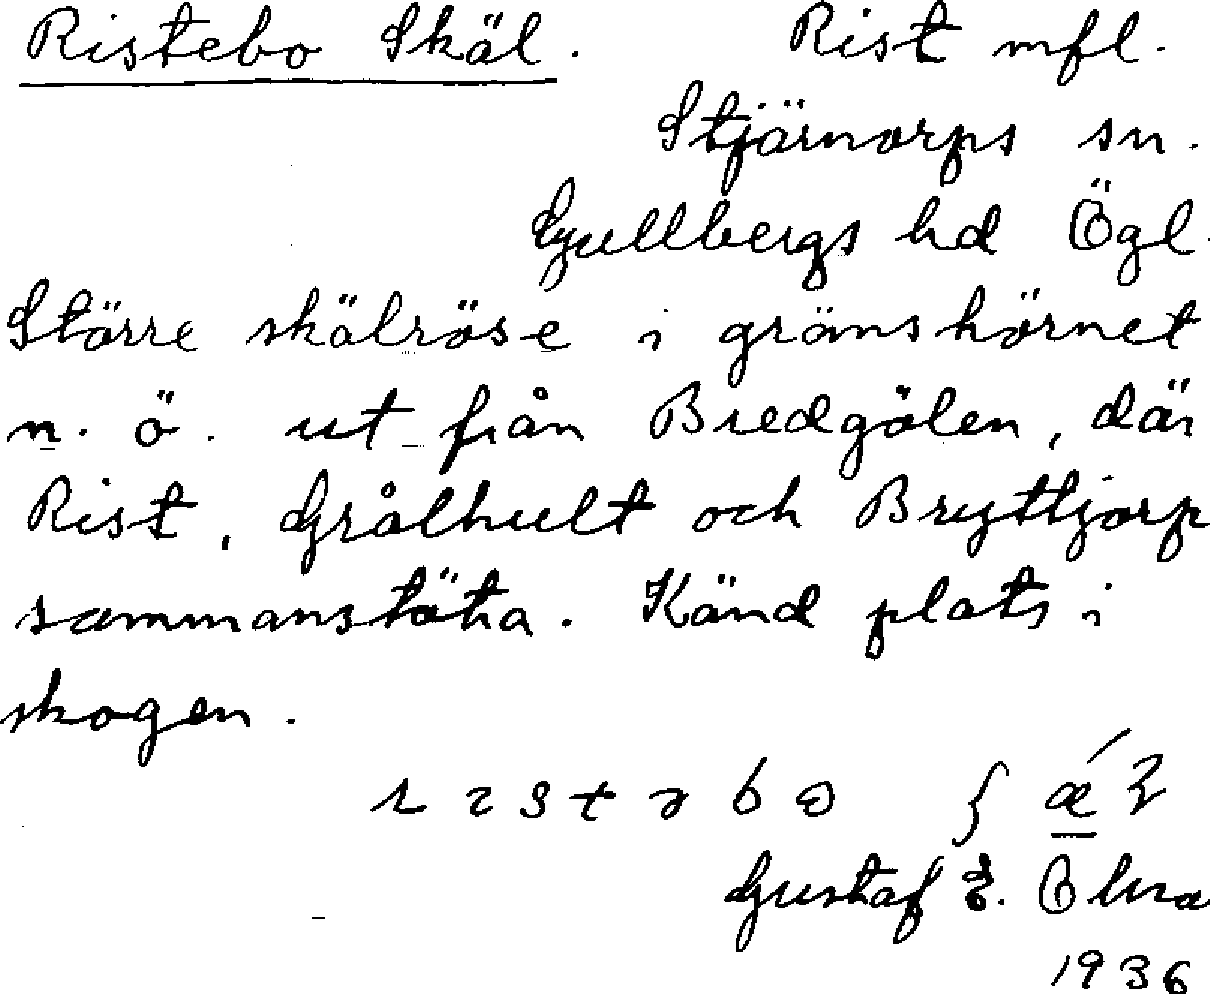 Ristebo Skäl. Rist mfl.
Stjärnorps sn.
Gullbergs hd Ögl.
Större skälröse i gränshörnet
n. ö. ut från Bredgölen, där
Rist, Grålhult och Bryttjorp
sammanstöta. Känd plats i
skogen.
Gustaf E.
1936